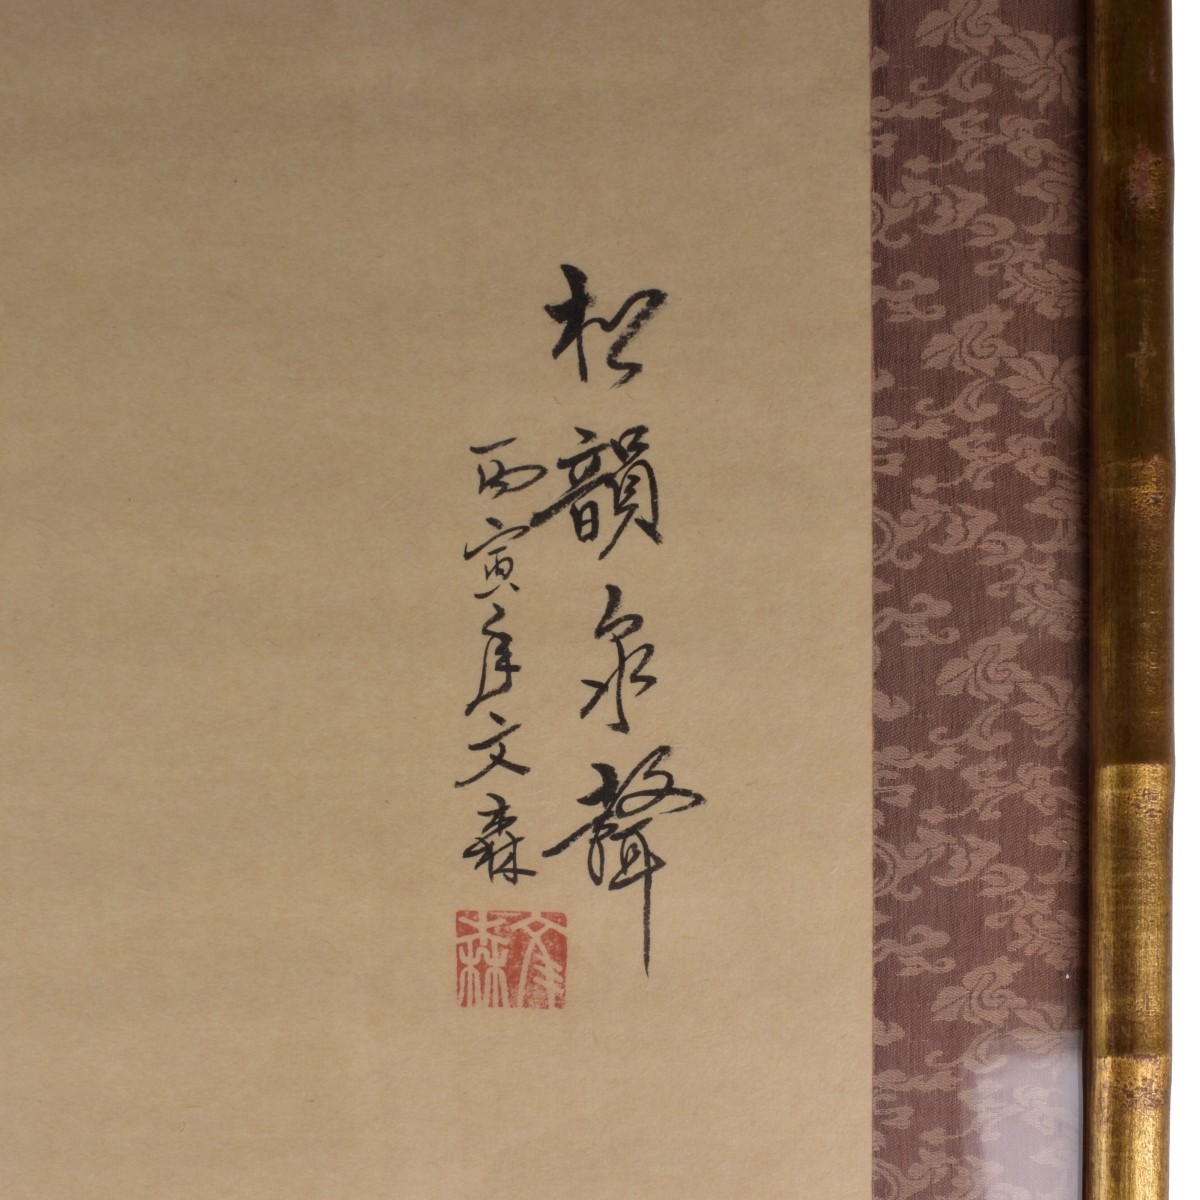 松韻泉聲
丙寅年文森